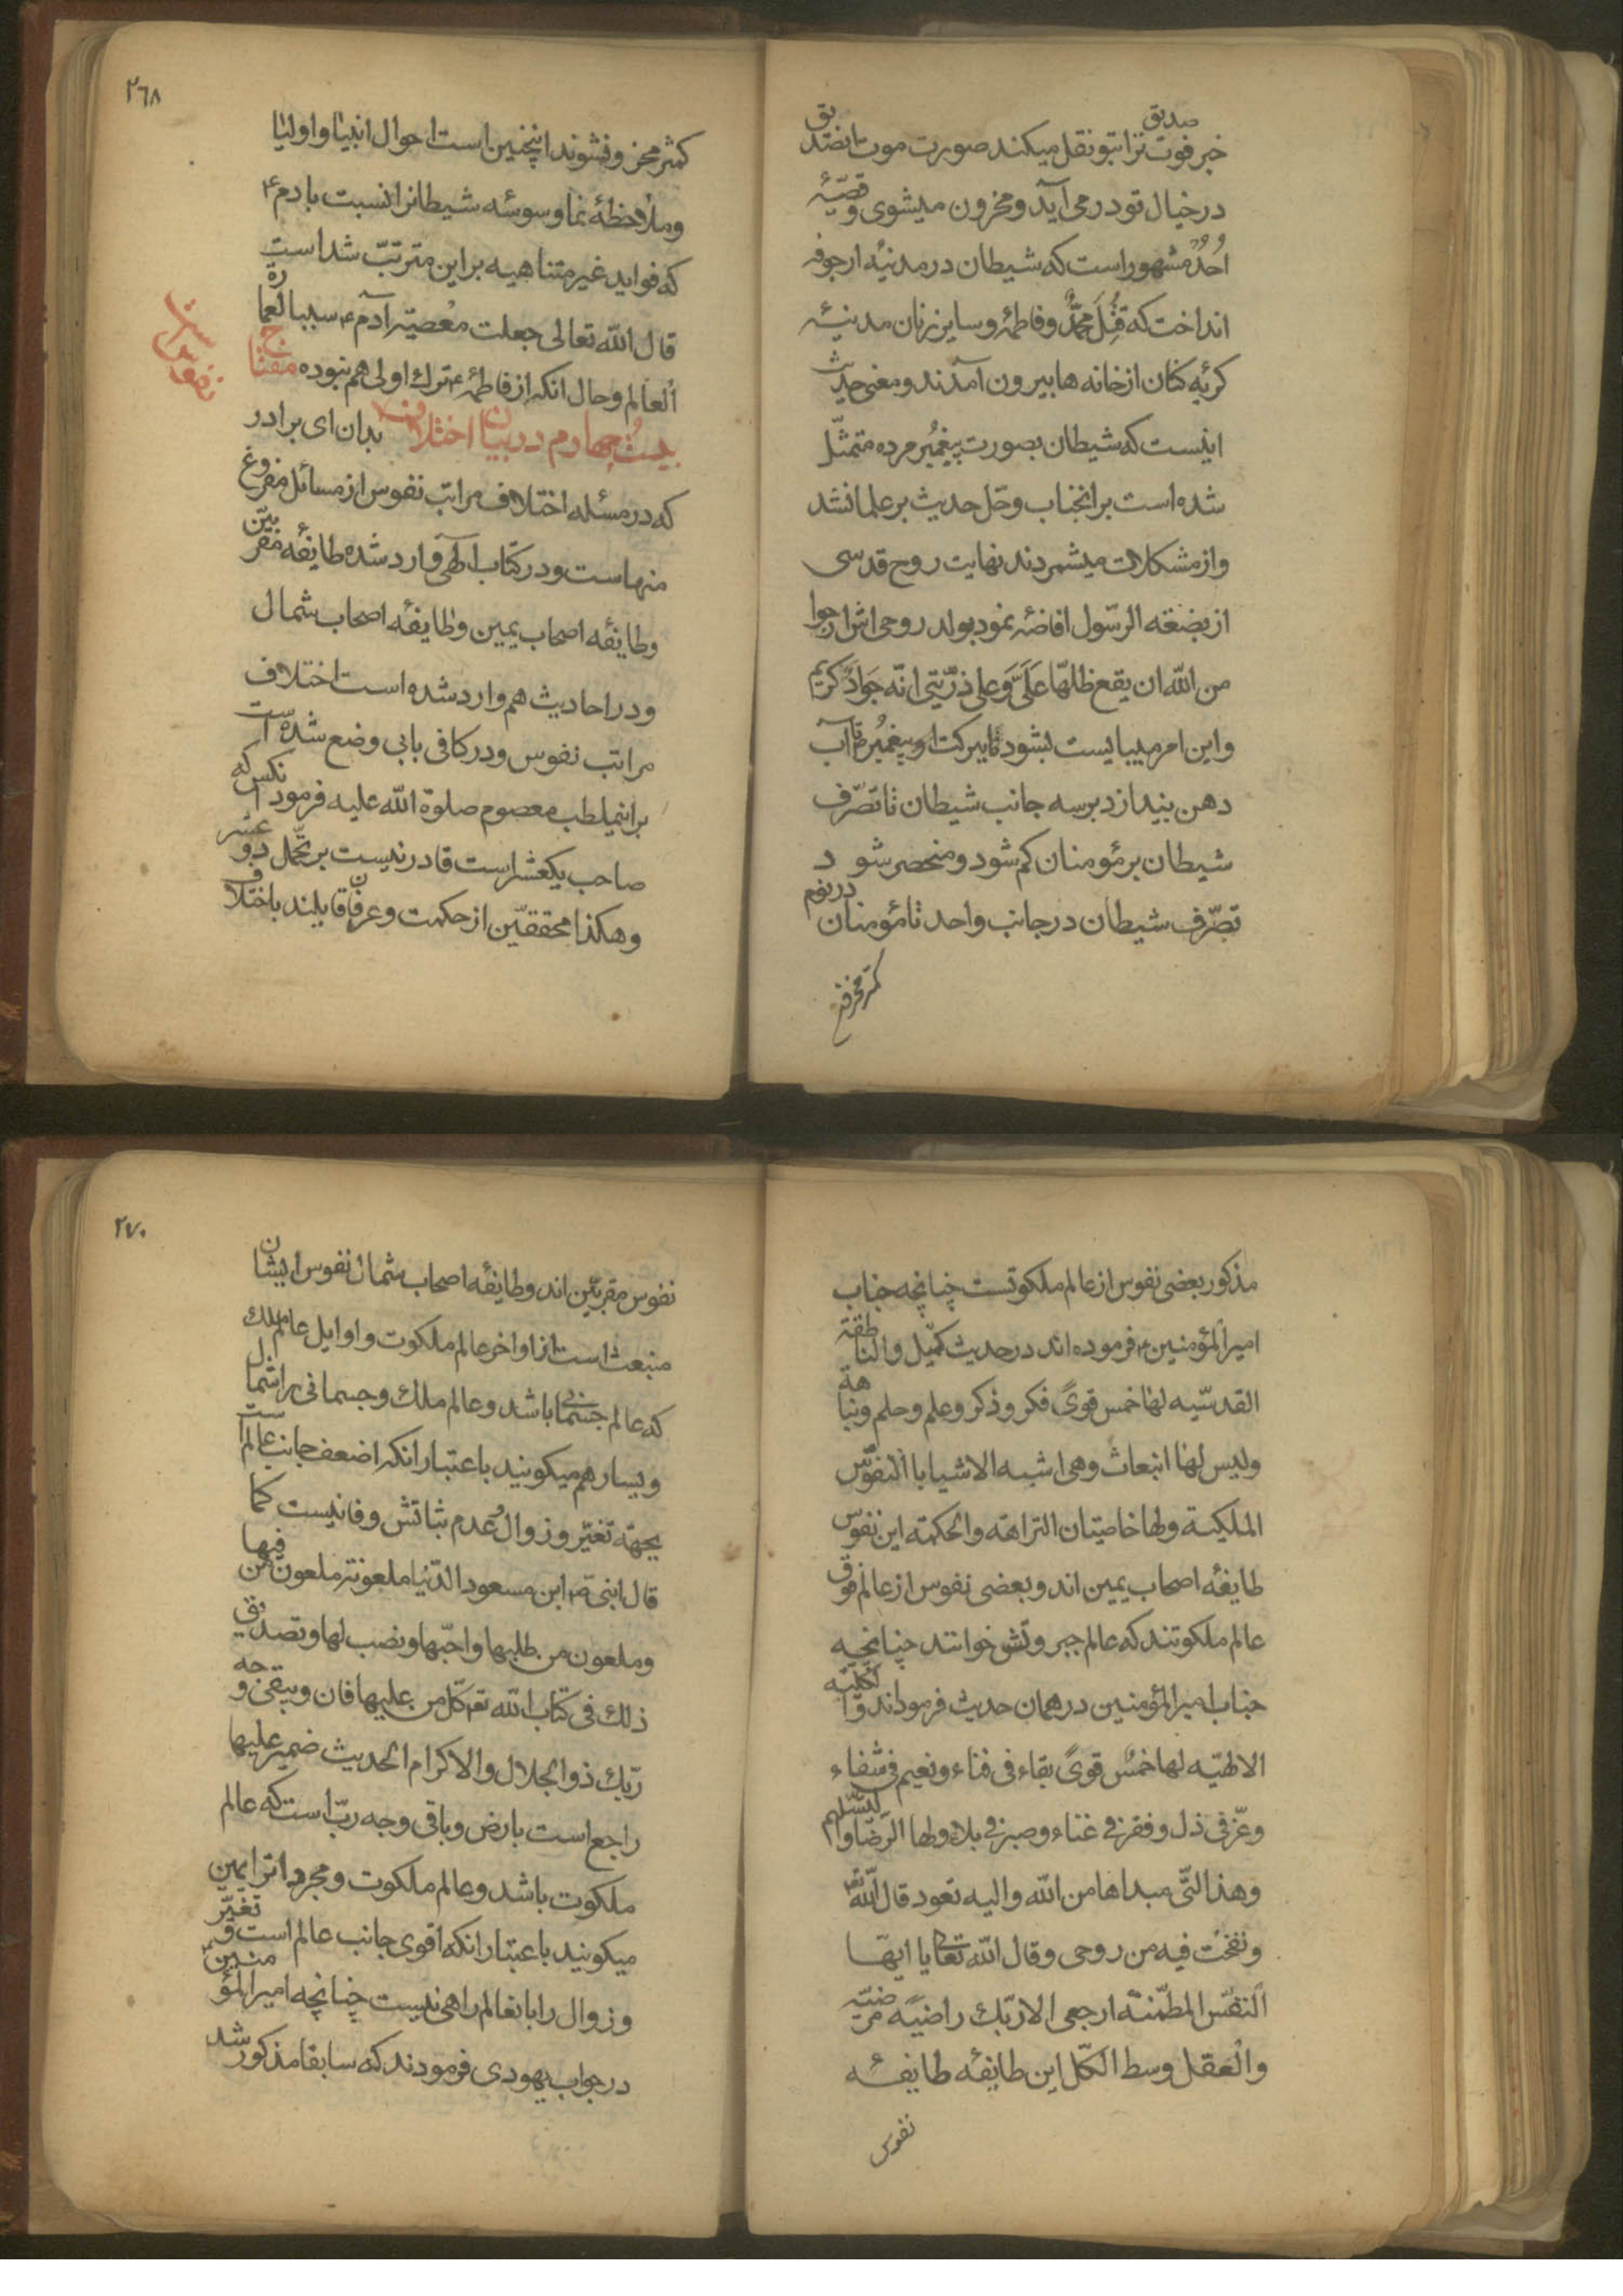 خبر فوت صدیق ترا بتو نقل میکند صورت موت انصدیق
در خیال تو در می آید و محزون میشوی و قصّهٔ
اُحُدْ مشهور است که شیطان در مدنیه ارجوفه
انداخت که قُتِلَ مُحَمَّدٌ و فاطمهٔ و سایر زنان مدنیهٔ
کریه کنان از خانه ها بیرون آمدند و معنی حدیث
اینست که شیطان بصورت پیغمبر مرده متمثّل
شده است بر انجناب و حّل حدیث بر علما نشد
و از مشکلات میشمردند نهایت روح قدسی
از بضعة الرّسول افاضهٔ نمود بواد روحی اش ارجوا
من اللّه ان یقع ظلهّا عَلَیَّ وَ علی ذرّیتّی انّه جَوادٌ کریم
و این امر میبایست بشود تا ببرکت او پیغمبر ص آب
دهن بیندازد بر سه جانب شیطان تا تصّرف
شیطان بر مؤمنان کم شود و منحصر شود
تصّرف شیطان در جانب واحد تا مؤمنان در نوم
کمتر محزون
٢٦٨
کمتر محزون شوند اینچنین است احوال انبیا و اولیا
و ملاحظهٔ نما وسوسهٔ شیطانرا نسبت بادم ع
که فواید غیر متناهیه بر این مترتّب شد است
قال اللّه تعالی جعلت معصیّة آدم ع سببا لعمارة
العالم و حال انکه از فاطمهٔ ع ترك اولی هم نبوده مفتاح
بیست چهارم در بیان اختلاف بدان ای برادر
که در مسئله اختلاف مراتب نفوس از مسائل مفروغ
منهاست و در کتاب الهی وارد شده طایفهٔ مقربین
و طایفهٔ اصحاب یمین و طایفهٔ اصحاب شمال
و در احادیث هم وارد شده است اختلاف
مراتب نفوس و در کافی بابی وضع شده است
برانمطلب معصوم صلوة اللّه علیه فرمود انکس که
صاحب یکعشر است قادر نیست بر تحّمل دو عشر
و هکذا محققیّن از حکمت و عرفان قایلند باختلاف
مذکور بعضی نفوس از عالم ملکوتست چنانچه جناب
امیر المؤمنین ع فرموده اند در حدیث کمیّل والناطقة
القدسّیه لها خمس قویً فکر و ذکر و علم و حلم و نباهة
ولیس لها انبعاث وهی اشبه الاشیا باالنفوس
الملکیة ولها خاصیتان النزاهة والحکمة این نفوس
طایفهٔ اصحاب یمین اند و بعضی نفوس از عالم فوق
عالم ملکوتند که عالم جبروتش خوانند چنانچه
جناب امیر المؤمنین در همان حدیث فرموداند والکلیّه
الالهیّه لها خمسُ قویً بقاء فی فناء و نعیم فی شفاء
وعّز فی ذل و فقر فی غناء و صبر فی بلاء ولها الرّضا والتسّلیم
وهذا التّی مبداها من اللّه والیه تعود قال اللّه تع
ونفخت فیه من روحی وقال اللّه تعالی یا ایهّا
النفّس المطمّئنة ارجعی الا ربّك راضیًه مرضیّة
والعقل وسط الکّل این طایفهٔ طایفهٔ
نفوس
٢٧٠
نفوس مقربّین اند و طایفهٔ اصحاب شمال نفوس ایشان
منبعث است از اواخر عالم ملکوت و اوایل عالم ملك
که عالم جسمانی باشد و عالم ملك و جسمانی را شمال
و یسار هم میکویند باعتبار انکه اضعف جانب عالم است
بجهة تغیّر و زوال و عدم ثباتش و فانیست کما
قال النبی ص ابن مسعود الدّنیا ملعونة ملعون من فیها
وملعون من طلبها واحّبها ونصب لها وتصدیق
ذلك فی کتاب اللّه تع کّل من علیها فان ویبقی وجه
ربّك ذو الجلال والاکرام الحدیث ضمیر علیها
راجع است بارض و باقی وجه ربّ است که عالم
ملکوت باشد و عالم ملکوت و مجرد اترا یمین
میکویند باعتبار انکه اقوی جانب عالم است و تغیّر
و زوال را بانعالم راهی نیست چنانچه امیر المؤمنین
در جواب یهودی فرمودند که سابقا مذکور شد